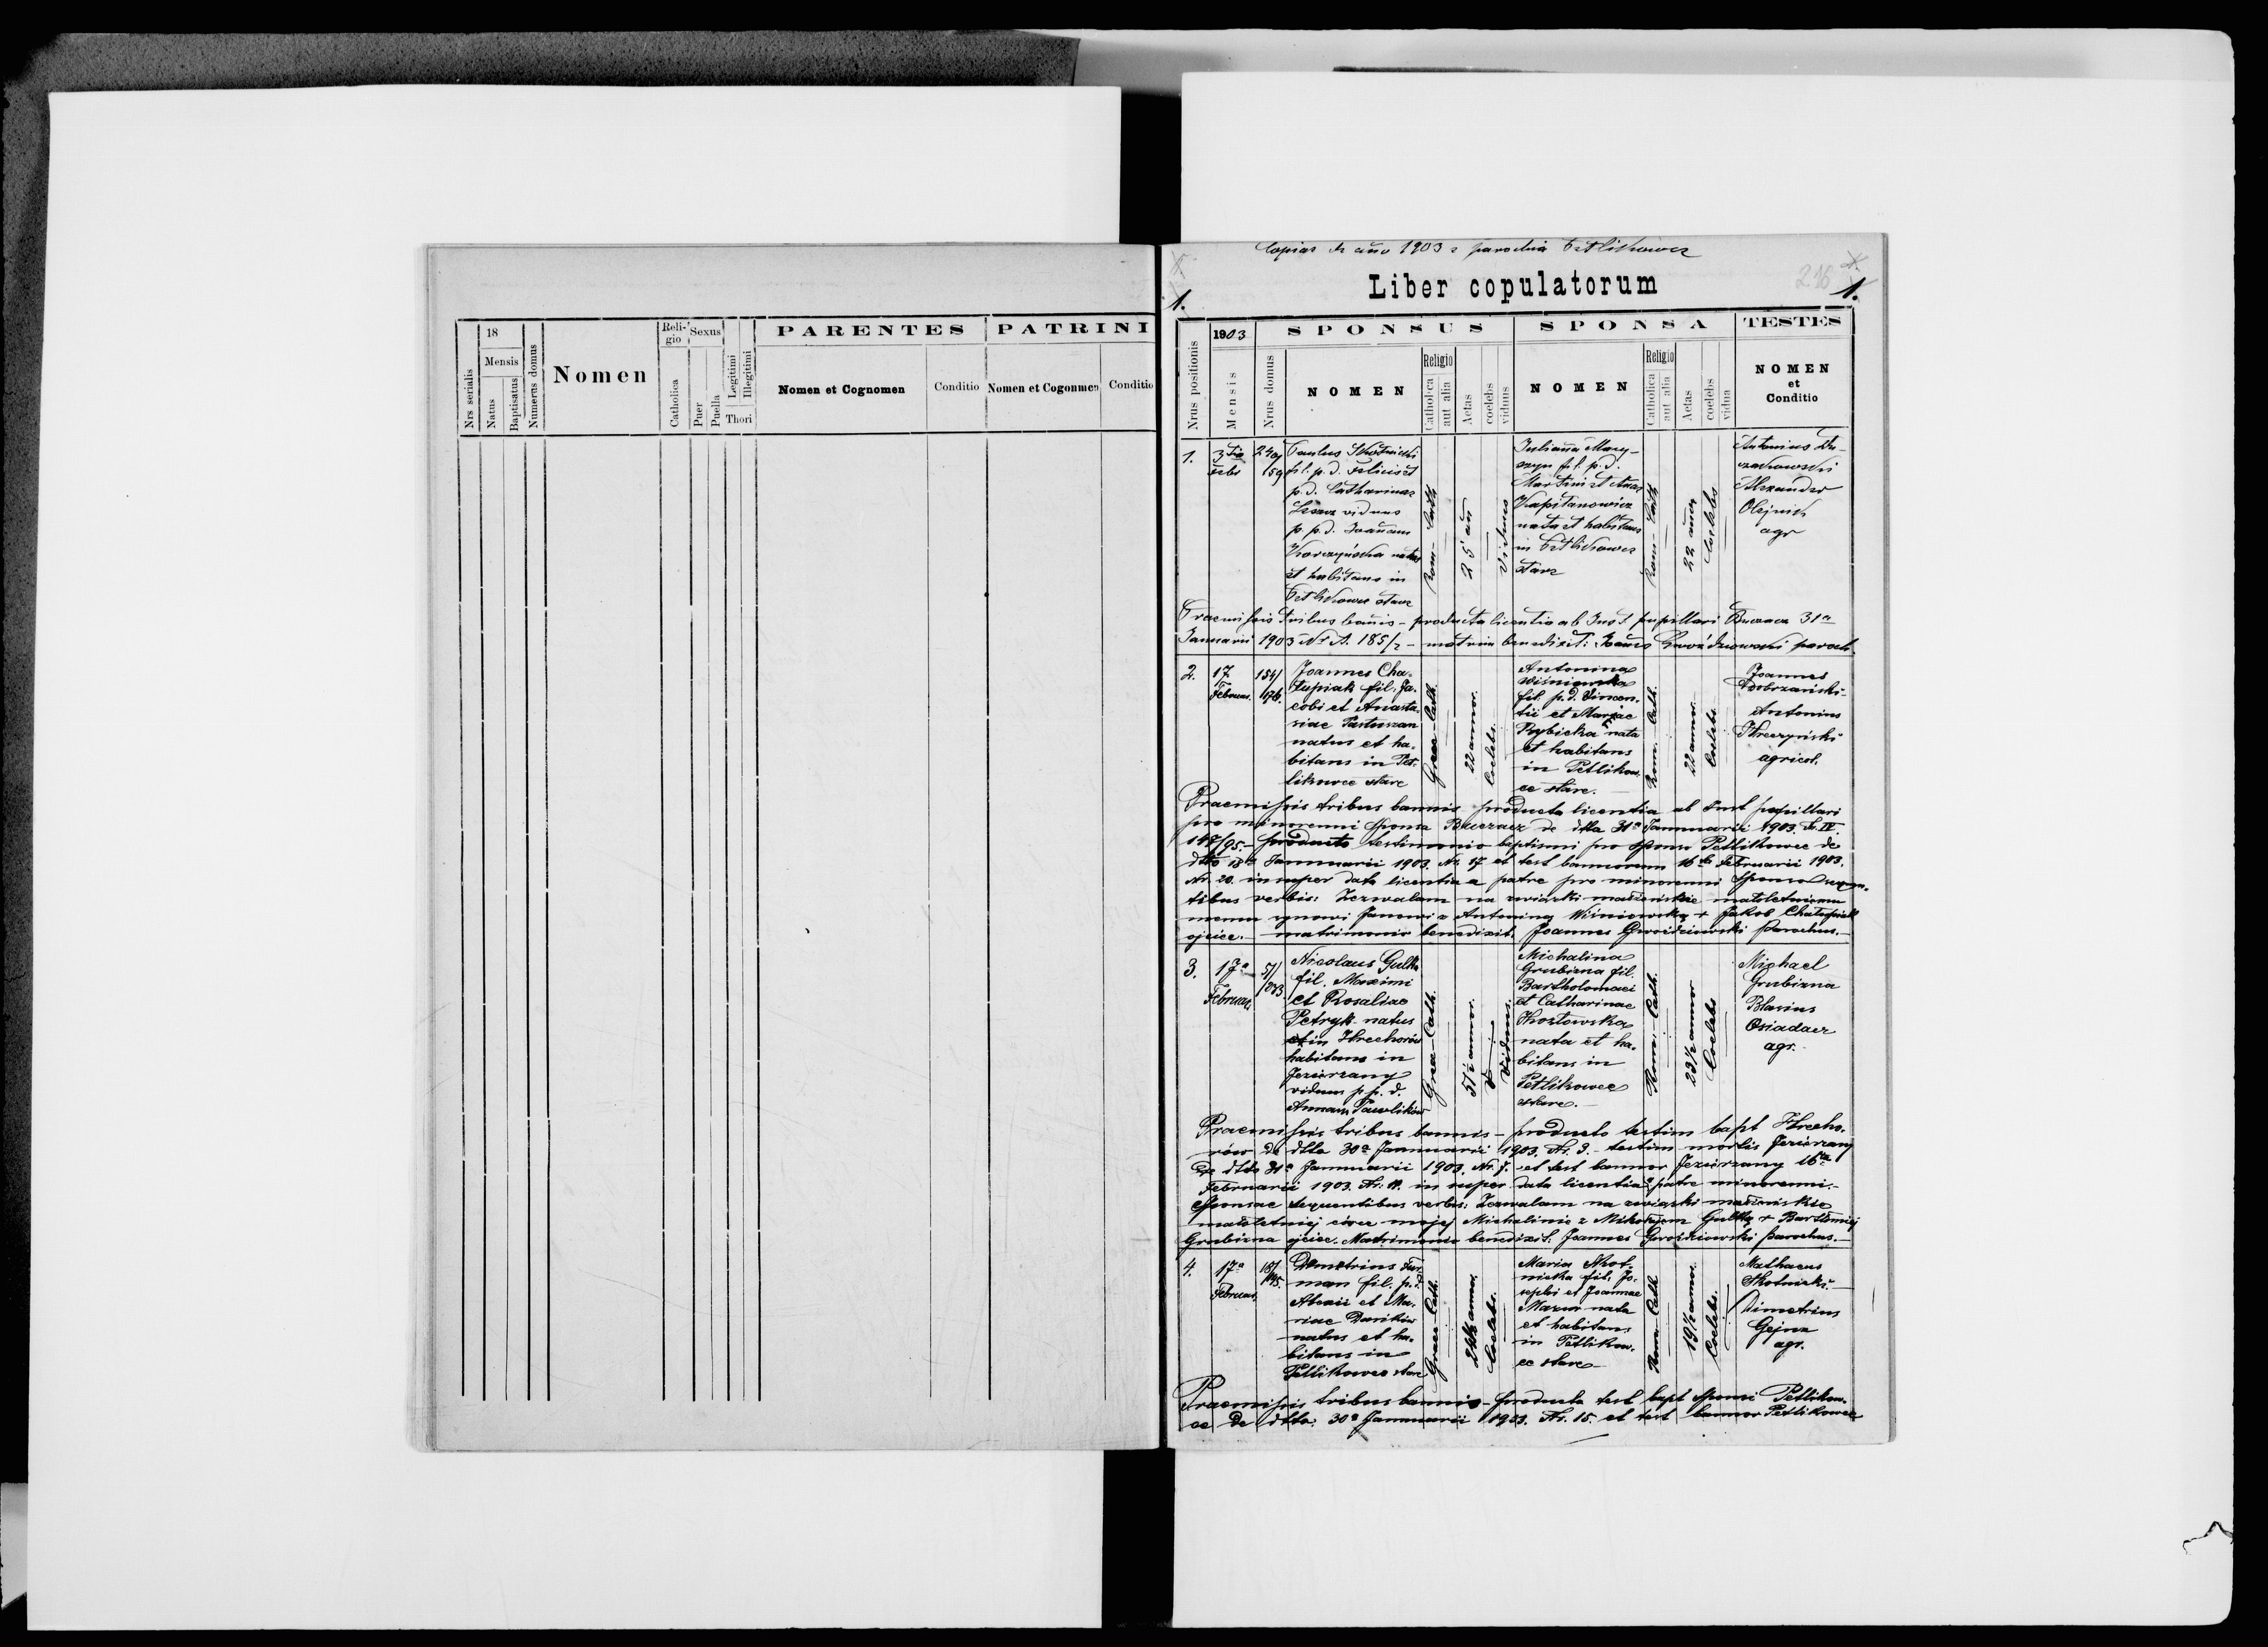 18
Mensis
Nrs serialis
Natus
Baptisatus
Numerus domus
Nomen
Reli-
gio
Catholica
Sexus
Puer
Puella
Legitimi
Illegitimi
Thori
PARENTES
Nomen et Cognomen
Conditio
PATRINI
Nomen et Cogonmen
Conditio
Copiae de anno 1903 parochia Petlikowce
Liber copulatorum
216
1.
1.
Nrus positionis
1903
Mensis
Nrus domus
SPONSUS
NOMEN
Religio
Catholeca
aut alia
Aetas
coelebs
viduus
SPONSA
NOMEN
Religio
Catholica
aut alia
Aetas
coelebs
vidua
TESTES
NOMEN
et
Conditio
1.
3tia
Febr
240/
159
Paulus Skotnicki
fil. p. d. Felicis et
p. d. Catharinae
viduus
p. p. d. Joannam
Korczyńska natus
et habitans in
Petlikowce stare
Rom-Cath
25 an
Viduus
Juliana Mary-
szyn fil. p. d.
Martini et Annae
Kapitanowicz
nata et habitans
in Petlikowce
stare
Rom-Cath
22 annor
Coelebs
Antonius
Alexander
Olejnik
agr
Praemissis tribus bannis – producta licentia ab Inst pupillari Buczacz 31a
Januarii 1903 Nr A. 185/2 – matrim benedixit: Joannes Gwoździowski paroch.
2.
17
Februar.
154/
176.
Joannes Cha-
łupiak fil. Ja-
cobi et Anasta-
siae Pastuszan
natus et ha-
bitans in Pet-
likowce stare
Graec Cath.
22 annor.
Coelebs.
Antonina
Wiśniewska
fil. p. d. Vincen-
tii et Mariae
Rybicka nata
et habitans
in Petlikow-
ce stare.
Rom. Cath.
22 annor.
Coelebs
Joannes
Dobrzański-
Antonius
Skreczyński
agricol.
Praemissis tribus bannis producta licentia ab Inst pupillari
pro minorenni sponsa Buczacz de dtto 31a Januarii 1903. Nr. IV.
147/95.– producto testimonio baptismi pro sponso Petlikowce de
dtto 18a Januarii 1903. Nr. 17 et test bannorum 16ta Februarii 1903.
Nr. 20. insuper data licentia a patre pro minorenni sponso sequen-
tibus verbis: Zezwalam na związki małżeńskie małoletniemu
memu synowi Janowi z Antoniną Wiśniowską + Jakob Chałupiak
ojciec. – matrimonio benedixit. Joannes Gwoździowski parochus.
3.
17a
Februar.
5/
133.
Nicolaus Gulka
fil. Maximi
et Rosaliae
Petryk natus
in Hrechorów
habitans in
Jezierzany
viduus p. p. d.
Annam Pawlików
Graec Cath.
Viduus.
Michalina
Grubizna fil.
Bartholomaei
et Catharinae
Kozłowska
nata et ha-
bitans in
Petlikowce
stare.–
Rom. Cath.
23½ annor
Coelebs
Michael
Grubizna
Blasius
Osiadacz
agr.
Praemissis tribus bannis – producto testim bapt Hrecho-
rów de dtto 30a Januarii 1903. Nr. 3. – testim mortis Jezierzany
de dtto 31a Januarii 1903. Nr. 7. et test bannor Jezierzany 16ta
Februarii 1903. Nr. 11. insuper data licentia patre minorenni
sponsae sequentibus verbis: Zezwalam na związki małżeńskie
małoletniej córce mojej Michalinie z Mikołajem Gulką + Bartłomiej
Grubizna ojciec. Matrimonio benedixit: Joannes Gwoździowski parochus.–
4.
17a
Februar.
18/
145.
Demetrius Fur-
man fil. p. d.
Alexii et Ma-
riae Daników
natus et ha-
bitans in
Petlikowce stare
Graec Cath.
24½ annor.
Coelebs.
Maria Skot-
nicka fil. Jo-
sephi et Joannae
Mazur nata
et habitans
in Petlikow-
ce stare–
Rom. Cath
19½ annor.
Coelebs.
Mathaeus
Skotnicki
Dimetrius
Gejna
agr.
Praemissis tribus bannis – producta test bapt sponsi Petlikow-
ce de dtto: 30a Januarii 1903. Nr. 15. et test bannor Petlikowce